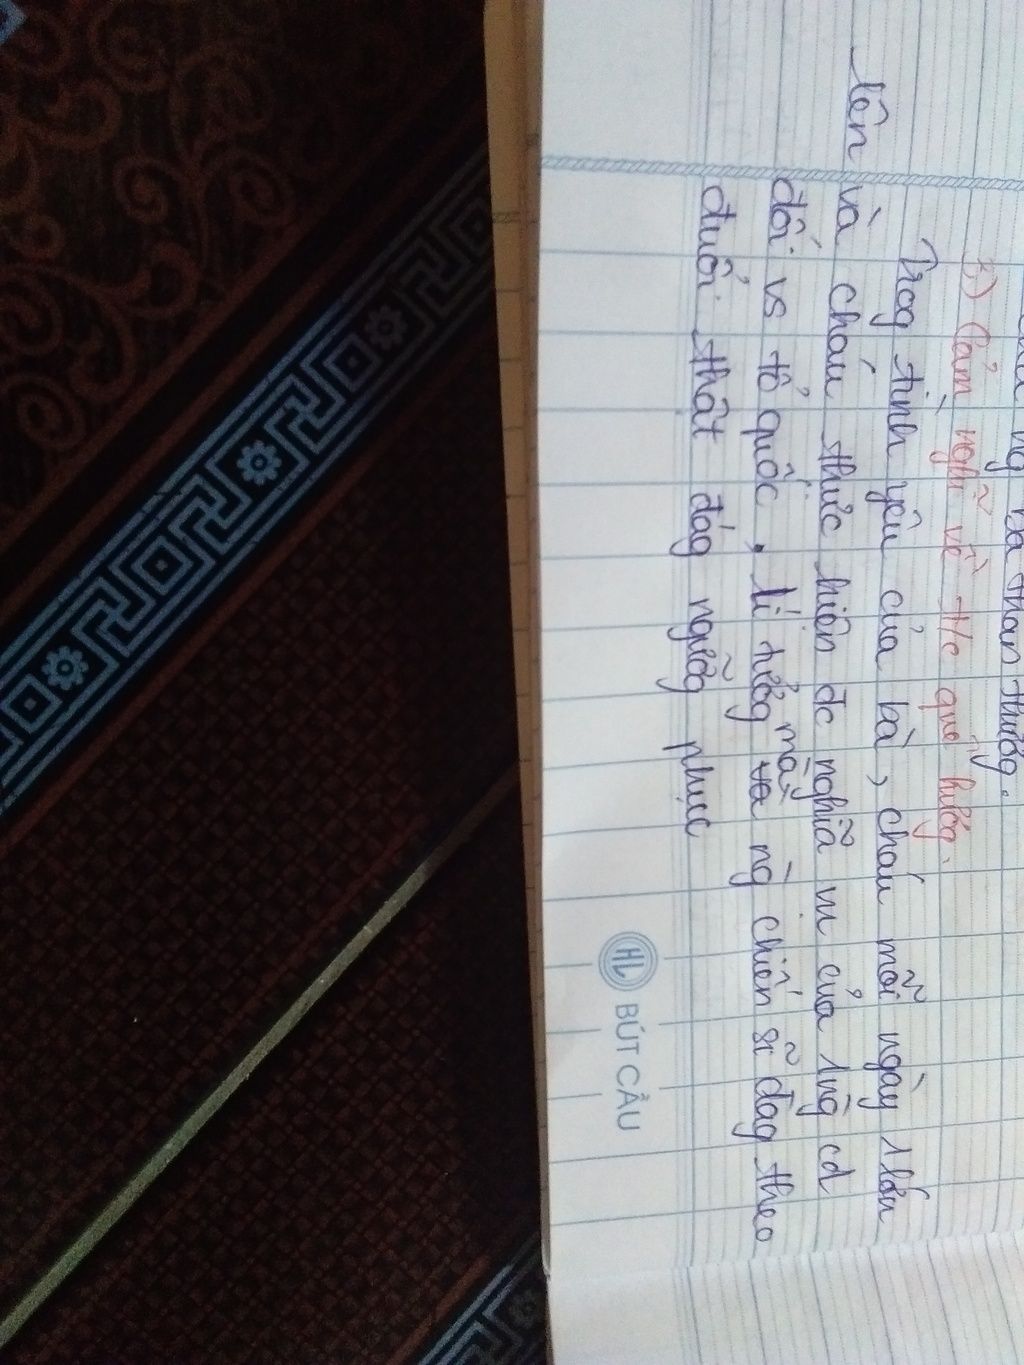 ng bà thân thươg.
3.) Cảm nghĩ về t/c quê hươg.
Trog tình yêu của bà, cháu mỗi ngày 1 lớn
lên và cháu thực hiện đc nghĩa vụ của 1 ng cd
đối vs tổ quốc. Lí tưởg mà ng chiến sĩ đag theo
đuổi thật đág ngưỡg phục
HL BÚT CẦU